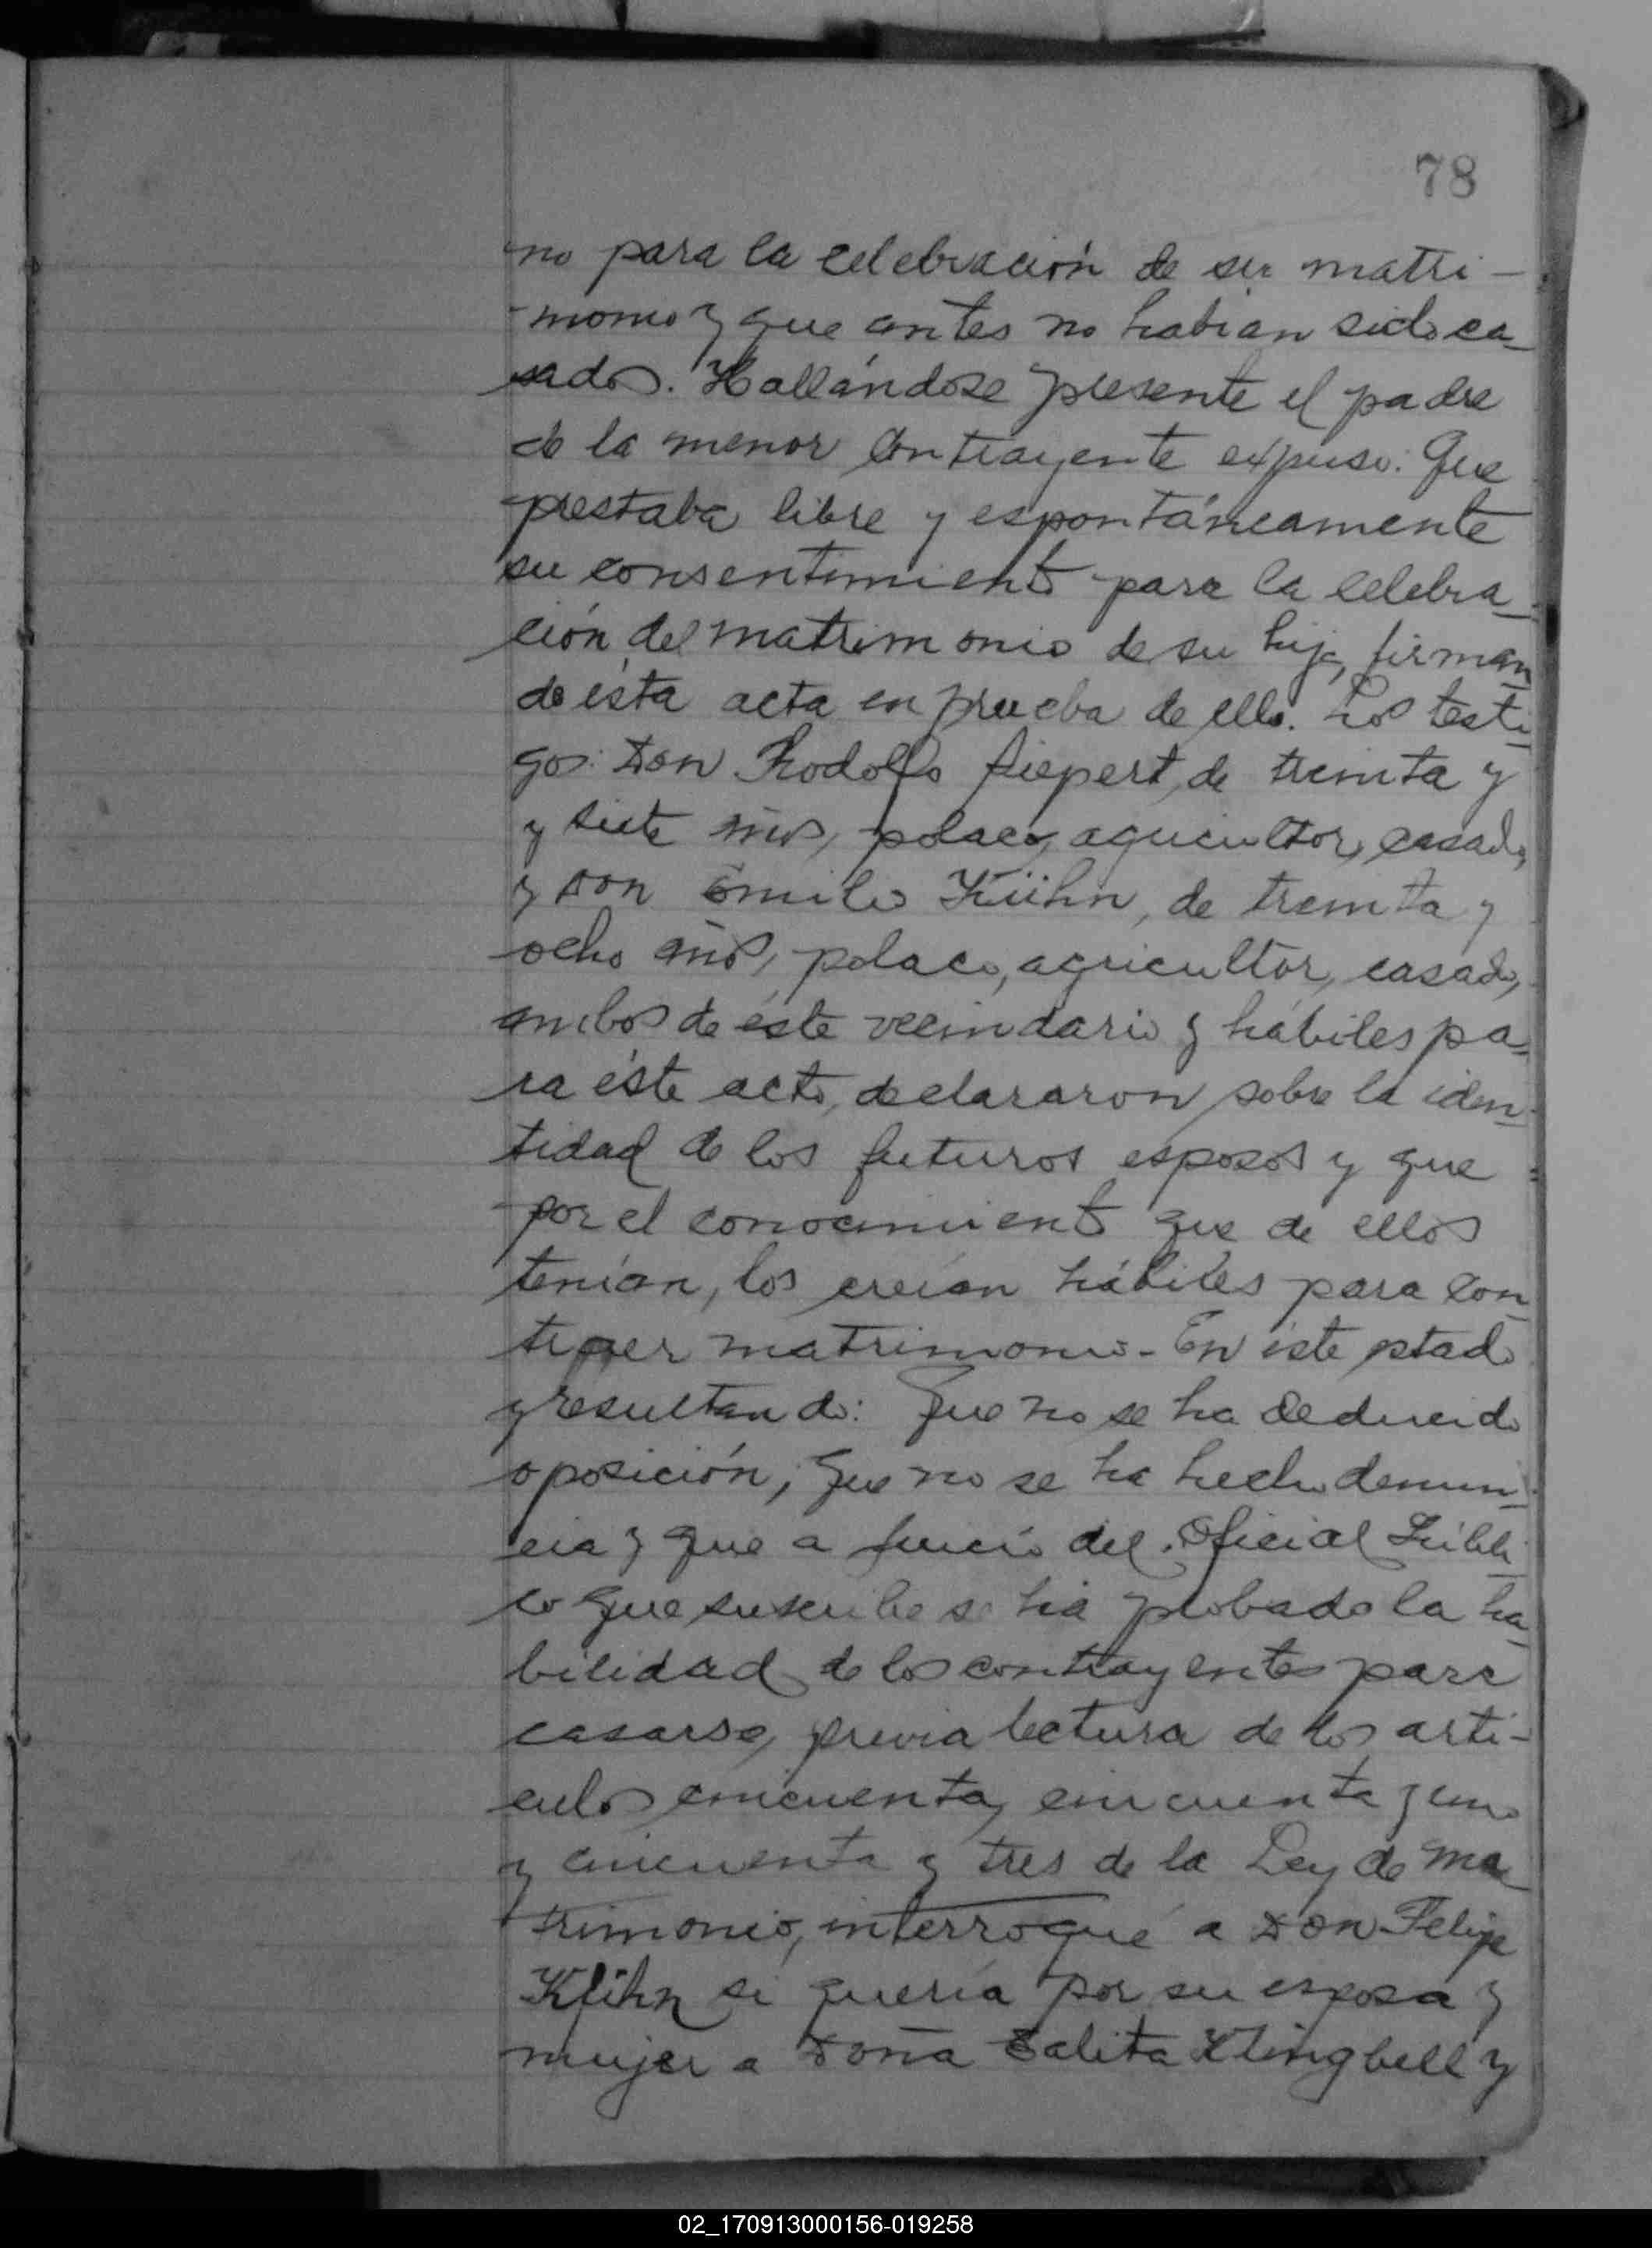 78
no para la celebración de su matri-
monio y que antes no habían sido ca-
sados. Hallándose presente el padre
de la menor contrayente expuso: Que
prestaba libre y espontáneamente
su consentimiento para la celebra-
ción del matrimonio de su hija, firman
do ésta acta en prueba de ello. Los testi-
gos: Don Rodolfo Siepert, de treinta y
y siete años, polaco, agricultor, casado,
y Don Emilio Kühn, de treinta y
ocho años, polaco, agricultor, casado,
ambos de éste vecindario y hábiles pa-
ra éste acto, declararon sobre la iden-
tidad de los futuros esposos y que
por el conocimiento que de ellos
tenían, los creían hábiles para con
traer matrimonio - En éste estado
y resultando: Que no se ha deducido
oposición, que no se ha hecho denun-
cia y que a juicio del Oficial Públi-
co que suscribe se ha probado la ha-
bilidad de los contrayentes para
casarse, previa lectura de los artí-
culos cincuenta, cincuenta y uno
y cincuenta y tres de la Ley de Ma-
trimonio, interrogué a Don Felipe
Kühn si quería por su esposa y
mujer a Doña Talita Klingbell y
02_170913000156-019258